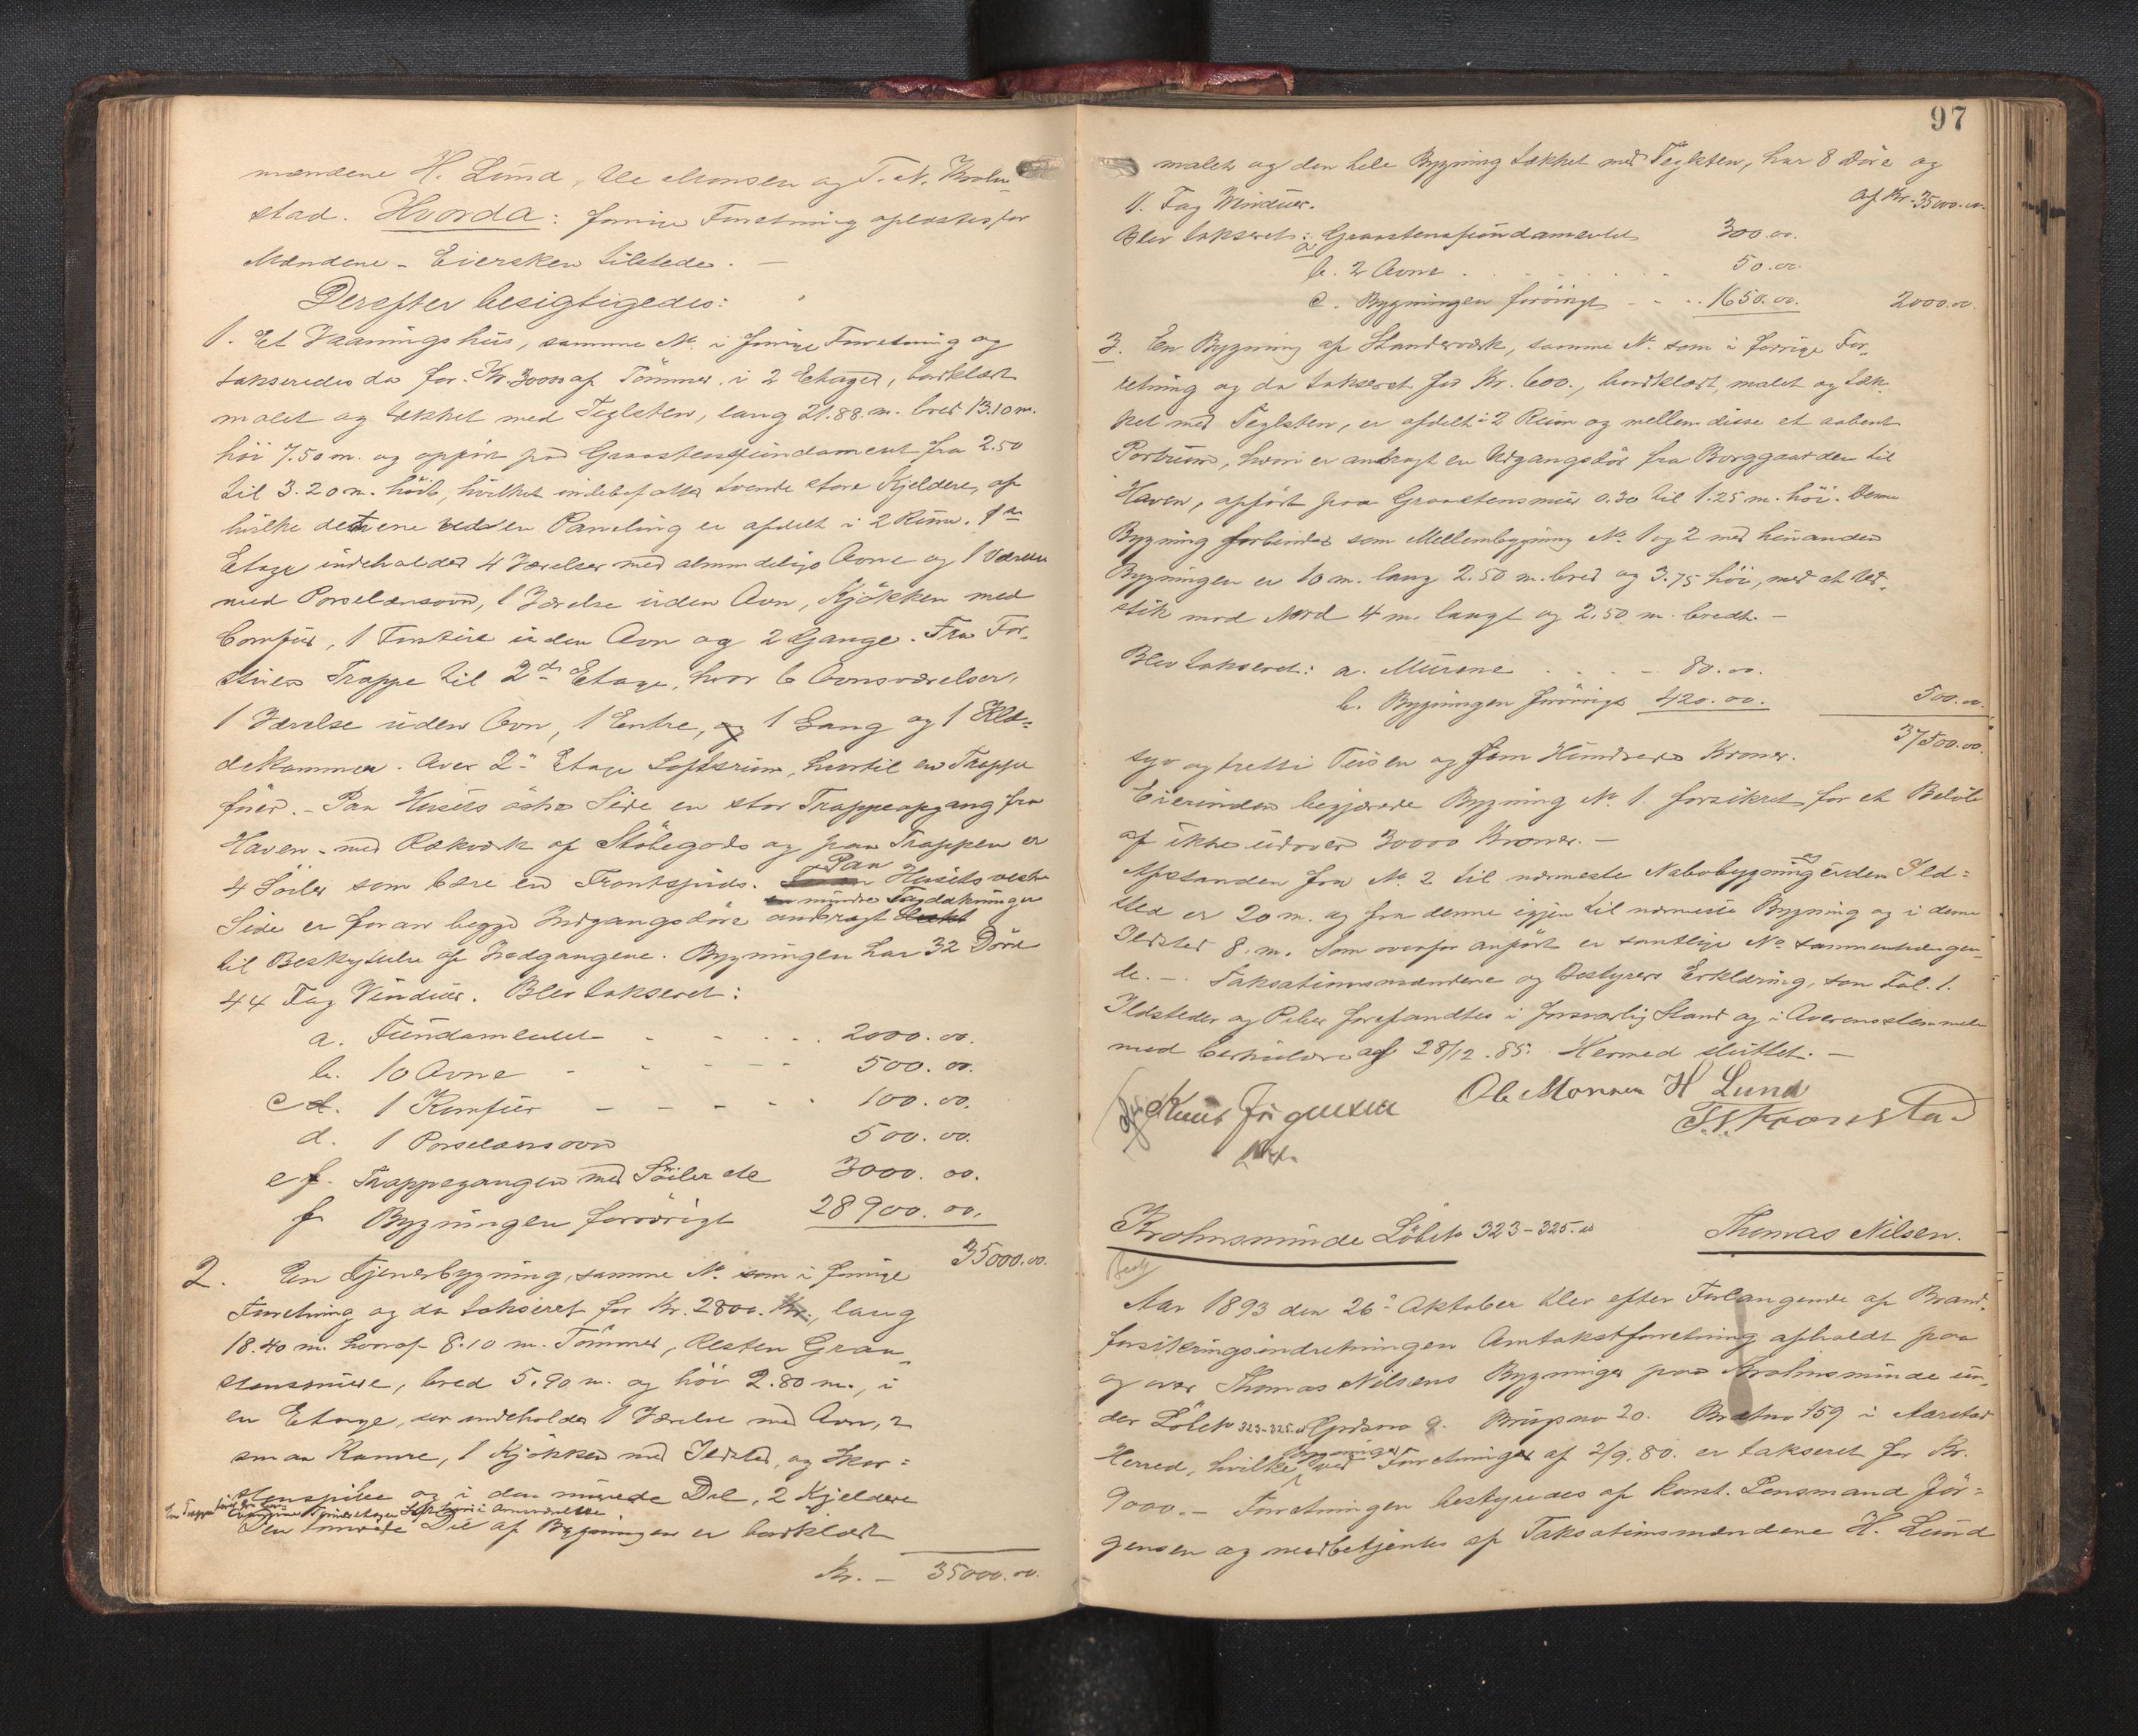 mændene H. Lund, Ole Monsen og T. N. Krohn-
stad. Hvorda: forrige Forretning oplæstes for
Mændene - Eiersken tilstede. -
Derefter besigtigedes:
1. Et Vaaningshus, samme No. i forrige Forretning og
takseredes da for Kr. 30000 af Tömmer i 2 Etager, bordklædt
malet og tækket med Teglsten, lang 21.88 m. bred 13.10 m.
höi 7.50 m. og opfört paa Graastensfundament fra 2.50
til 3.20 m. höit, hvilket indebefatter tvende store Kjeldere, af
hvilke det ene ved en Paneling er afdelt i 2 Rum. 1ste
Etage indeholder 4 Værelser med almindelige Ovne og 1 Værelse
med Porselænsovn, 1 Værelse uden Ovn, Kjökken med
Comfur, 1 Forstue uden Ovn og 2 Gange. Fra For-
stuen Trappe til 2den Etage, hvor 6 Ovnsværelser,
1 Værelse uden Ovn, 1 Entre, og 1 Gang og 1 Klæ-
dekammer. Over 2den Etage Loftsrum, hvortil en Trappe
fører. - Paa Husets östre Side en stor Trappeopgang fra
Haven - med Rækværk af Stöbegods og paa Trappen er
4 Söiler som bære en Frontspids. Paa Husets vestre
en mindre Tagdækninger
Side er foran begge Indgangsdöre anbragt
til Beskyttelse af Indgangene. Bygningen har 32 Döre
44 Fag Vinduer. Blev takseret:
a. Fundamentet - - - - 2000.00.
b. 10 Ovne - - - - 500.00.
c. 1 Komfur - - - - 100.00.
d. 1 Porselænsovn 500.00.
e. Trappegangen med Söiler etc 3000.00.
f. Bygningen forövrigt 28900.00.
35000.00.
2. En Tjenerbygning, samme No. som i forrige
Forretning og da takseret for Kr. 2800. Kr., lang
18.40 m. hvoraf 8.10 m. Tömmer, Resten Graa-
stensmure, bred 5.90 m. og höi 2.80 m., i
en Etage, der indeholder 1 Værelse med Ovn, 2
smaa Kamre, 1 Kjökken med Ildsted, og Skor-
stenspibe og i den murede Del, 2 Kjeldere
En Trappe
Den tömrede Del af Bygningen er bordklædt
Kr. - 35000.00.
97
malet og den hele Bygning tækket med Teglsten, har 8 Döre og
11. Fag Vinduer. af Kr. 35000.00.
Blev takseret: a. Graastensfundamentet 300.00.
b. 2 Ovne . . . . . . 50.00.
c. Bygningen forövrigt - - . 1650.00. 2000.00.
3. En Bygning af Standerværk, samme No. som i forrige For-
retning og da takseret for Kr. 600., bordklædt, malet og tæk-
ket med Teglsten, er afdelt i 2 Rum og mellem disse et aabent
Portrum, hvori er anbragt en Udgangsdör fra Borggaarden til
Haven, opfört paa Graastensmur 0.30 til 1.25 m. höi. Denne
Bygning forbinder som Mellembygning No. 1 og 2 med hinanden
Bygningen er 10 m. lang 2.50 m. bred og 3.75 höi, med et Ud-
stik mod Nord 4 m. langt og 2.50 m. bredt. -
Blev takseret: a. Murene . . . - 80.00.
b. Bygningen forövrigt 420.00. 500.00.
37500.00.
syv og tretti Tusen og fem Hundrede Kroner.
Eierinden begjærede Bygning No. 1. forsikret for et Belöb
af ikke udover 30000 Kroner. -
Afstanden fra No. 2 til nærmeste Nabobygning uden Ild-
sted er 20 m. og fra denne igjen til nærmeste Bygning og i denne
Ildsted 8. m. Som ovenfor anfört er samtlige No. sammenhængen-
de. - . Taksationsmændene og Bestyrers Erklæring, som Fol. 1.
Ildsteder og Piber forefandtes i forsvarlig Stand og i Overensstemmelse
med Cerkulære af 28/12.85. Hermed sluttet. -
Knut Jörgensen Ole Monsen H Lund
T. N. Kronstad
Krohnsminde Löbeno 323-325.a Thomas Nilsen.
Aar 1893 den 26de Oktober blev efter Forlangende af Brand-
forsikringsindretningen Omtakstforretning afholdt paa
og over Thomas Nilsens Bygninger paa Krohnsminde un-
der Löbeno 323-325.a Gardsno 9. Brugsno 20. Brandno 159 i Aarstad
Herred, hvilke Bygninger ved Forretninger af 2/9.80. er takseret for Kr.
9000. - Forretningen bestyredes af konst. Lensmand Jör-
gensen og medbetjentes af Taksationsmændene H. Lund